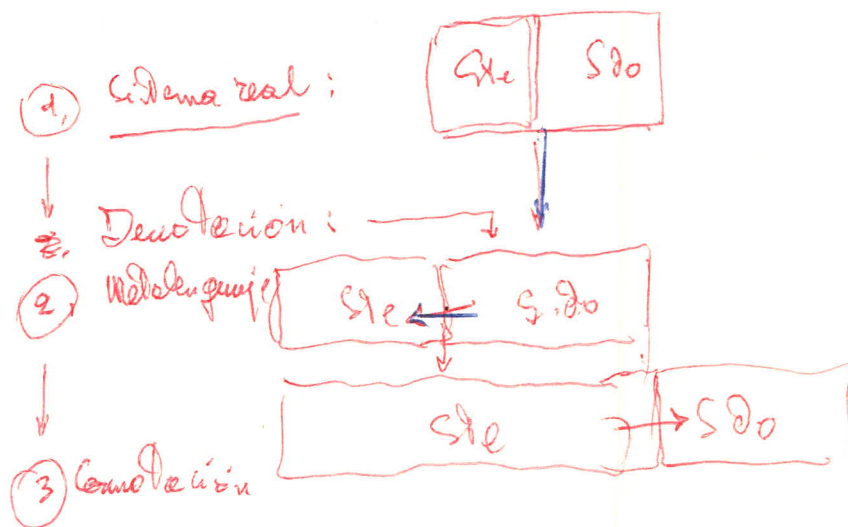 1. Sistema real : Ste Sdo
Denotación :
2. Metalenguaje Ste S.do
Ste Sdo
3 Connotación